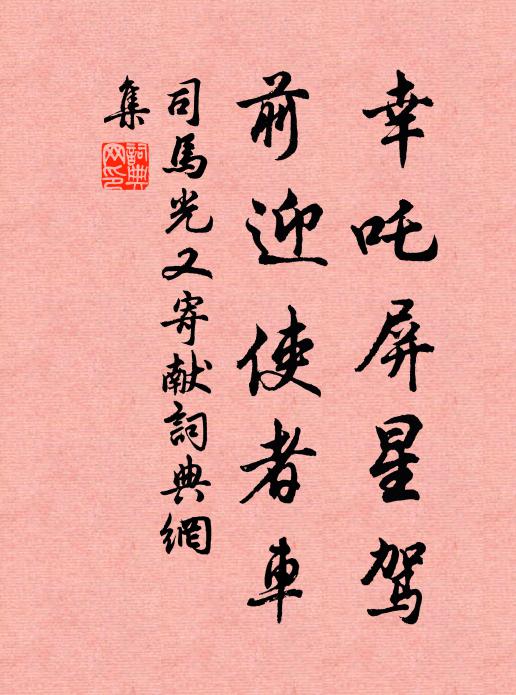 幸吒屏星駕
前迎使者車
司馬光又寄献詞典網
集
詞典
网印